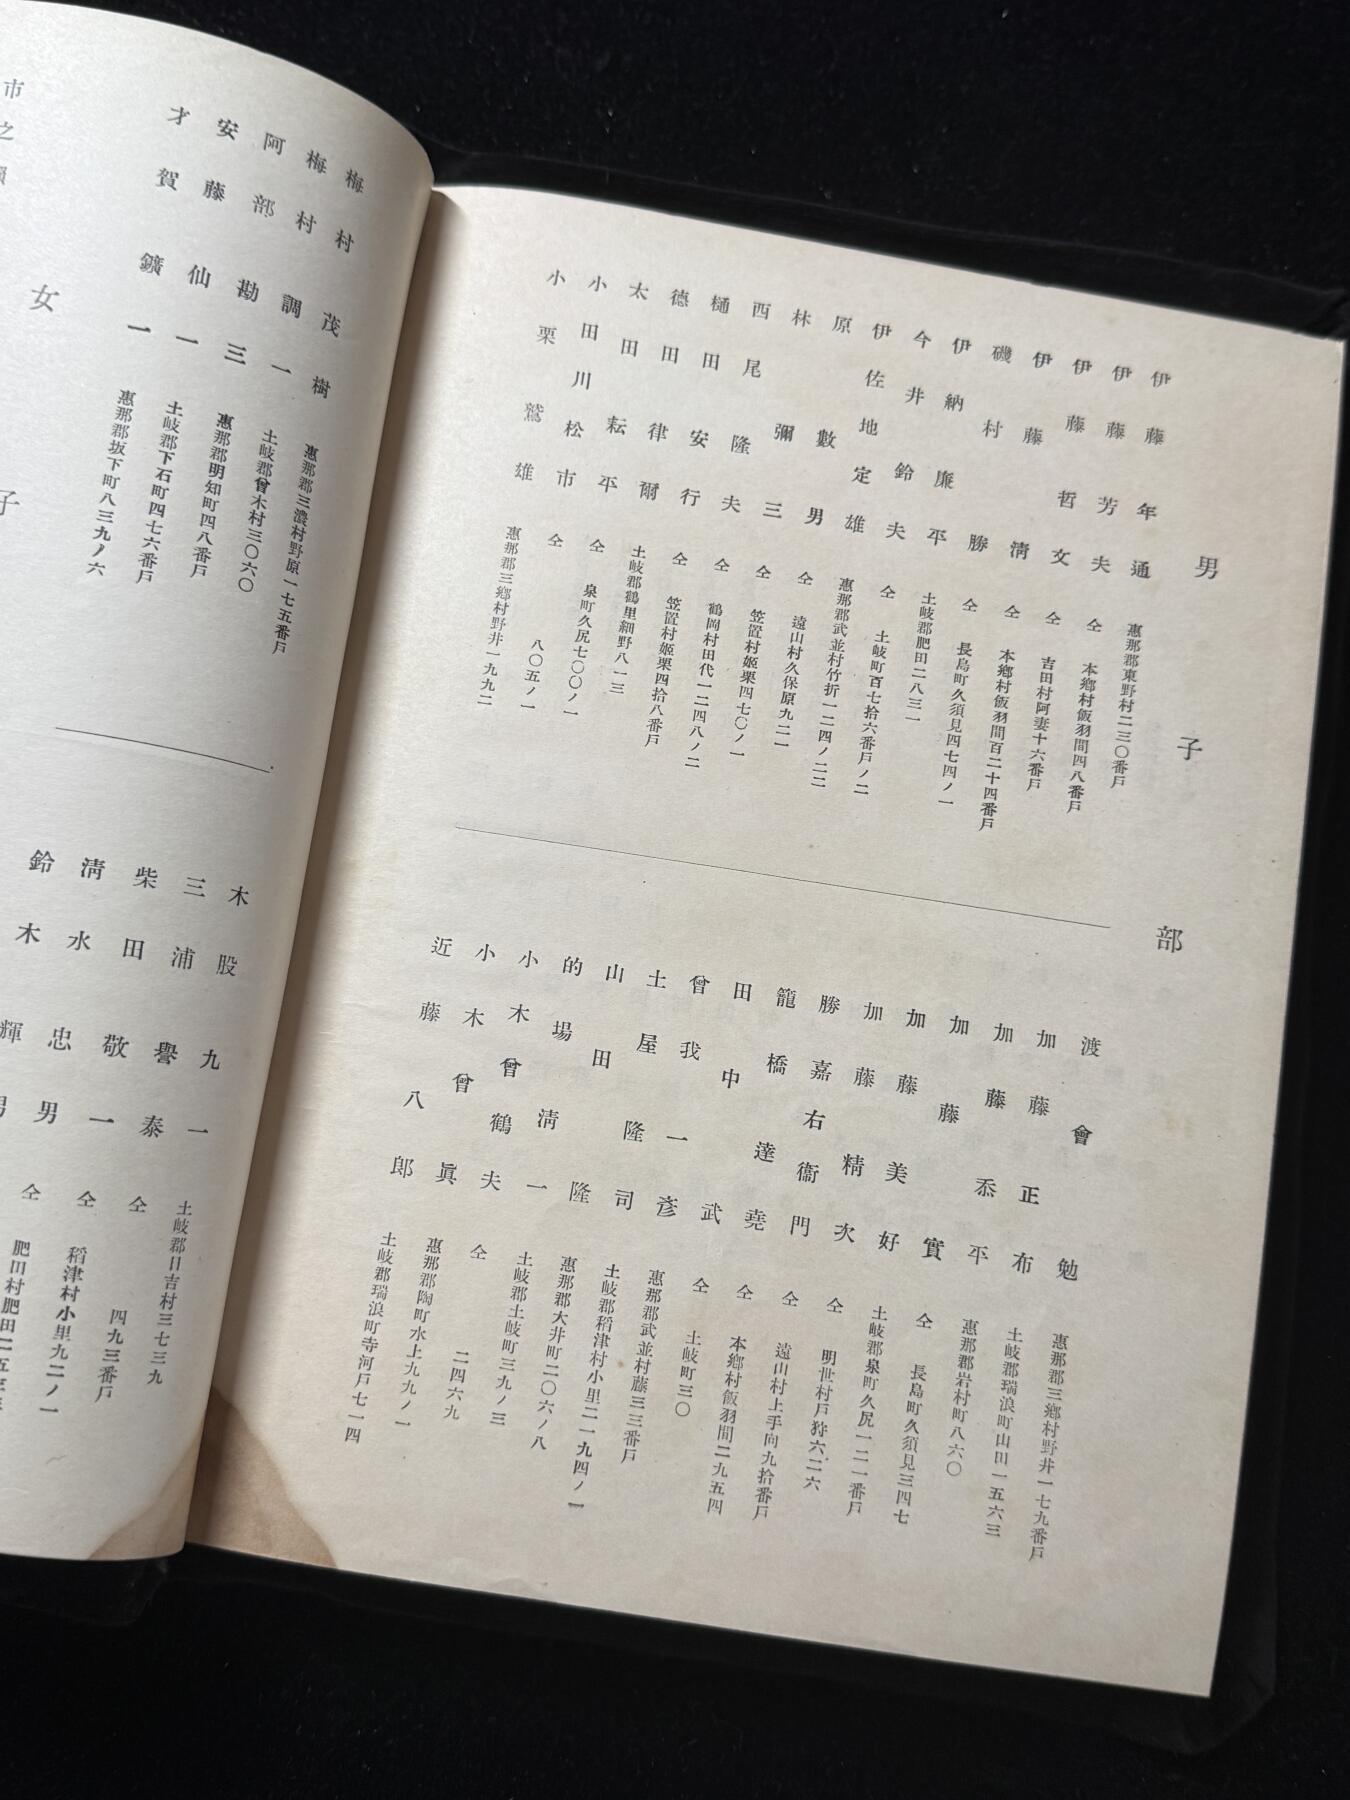 男子部
伊藤年通 惠那郡東野村二三〇番戸
伊藤芳夫 仝 本鄕村飯羽間四八番戸
伊藤哲文 仝 吉田村阿妻十六番戸
伊藤淸 仝 本鄕村飯羽間百二十四番戸
磯村勝 仝 長島町久須見四七四ノ一
伊納廉平 土岐郡肥田二八三一
今井鈴夫 仝 土岐町百七拾六番戸ノ二
伊佐地定雄 惠那郡武並村竹折一二四ノ二二
原數男 仝 遠山村久保原九二一
林彌三 仝 笠置村姬栗四七〇ノ一
西尾隆夫 仝 鶴岡村田代一二四八ノ二
樋田安行 仝 笠置村姬栗四拾八番戸
德田律爾 土岐郡鶴里細野八一三
太田耘平 仝 泉町久尻七〇〇ノ一
小田川松市 仝 八〇五ノ一
小栗鷲雄 惠那郡三鄕村野井一九九二
渡會勉 惠那郡三鄕村野井一七九番戸
加藤正布 土岐郡瑞浪町山田一五六三
加藤忝平 惠那郡岩村町八六〇
加藤實 仝 長島町久須見三四七
加藤美好 土岐郡泉町久尻一二一番戸
加藤精次 仝 明世村戸狩六二六
勝嘉右衞門 仝 遠山村上手向九拾番戸
籠橋達堯 仝 本鄕村飯羽間二九五四
田中武 仝 土岐町三〇
曾我一彥 惠那郡武並村藤三三番戸
土屋隆司 土岐郡稻津村小里二一九四ノ一
山田隆 惠那郡大井町二〇六ノ八
的場淸一 土岐郡土岐町三九ノ三
小木曾鶴夫 仝 二四六九
小木曾眞 惠那郡陶町水上九九ノ一
近藤八郎 土岐郡瑞浪町寺河戸七一四
梅村茂樹 惠那郡三濃村野原一七五番戸
梅村調一 土岐郡曾木村三〇六〇
阿部勘三 惠那郡明知町四八番戸
安藤仙一 土岐郡下石町四七六番戸
才賀鑛一 惠那郡坂下町八三九ノ六
木股九一 土岐郡日吉村三七三九
三浦譽泰 仝 四九三番戸
柴田敬一 仝 稻津村小里九二ノ一
淸水忠男 仝 肥田村肥田二五
鈴木輝男
女子
市之